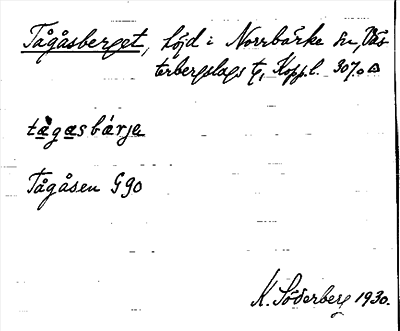 Tågåsberget, höjd i Norrbärke sn, Väs-
terbergslags tg, Kopp.l. 307.0 △
tågasbärje
Tågåsen G90
K. Söderberg 1930.